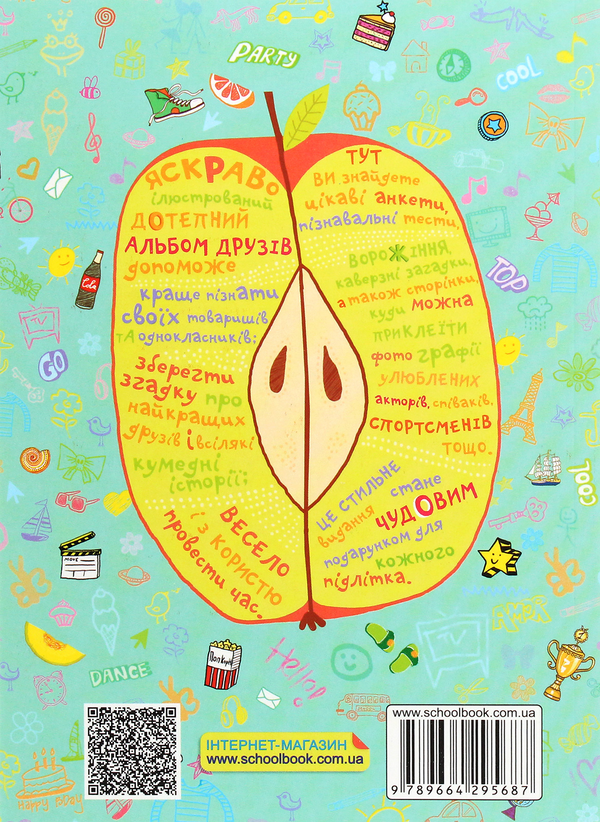 PARTY
COOL
ЯСКРАВО
ілюстрований
ДОТЕПНИЙ
АЛЬБОМ ДРУЗІВ
допоможе
краще пізнати
своїх товаришів
та однокласників;
зберегти
згадку про
найкращих
друзів і всілякі
кумедні
історії;
ВЕСЕЛО
і з користю
провести час.
ТУТ
ВИ знайдете
цікаві анкети,
пізнавальні тести,
ВОРОЖІННЯ
каверзні загадки,
а також сторінки,
куди можна
ПРИКЛЕЇТИ
фотографії
улюблених
акторів, співаків,
СПОРТСМЕНІВ
тощо.
ЦЕ СТИЛЬНЕ
видання стане
ЧУДОВИМ
подарунком для
кожного
підлітка.
Cola
TOP
TV
GO
COOL
MOVIE
DANCE
Попкорн
Hello!
Happy B'day
ІНТЕРНЕТ-МАГАЗИН
www.schoolbook.com.ua
www.schoolbook.com.ua
9 789664 295687